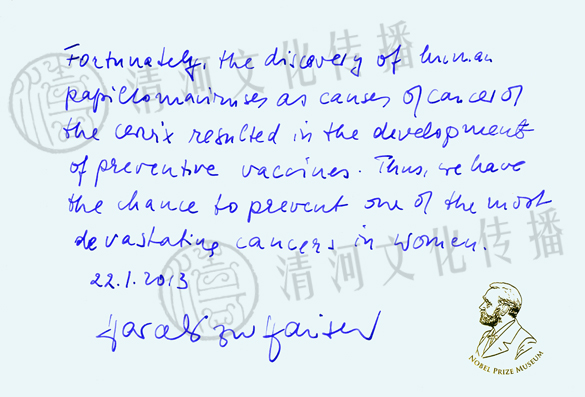 Fortunately, the discovery of human
papillomaviruses as causes of cancer of
the cervix resulted in the development
of preventive vaccines. Thus, we have
the chance to prevent one of the most
devastating cancers in women.
22.1.2013
Harald zur Hausen
NOBEL PRIZE MUSEUM
清河文化传播
清河文化传播